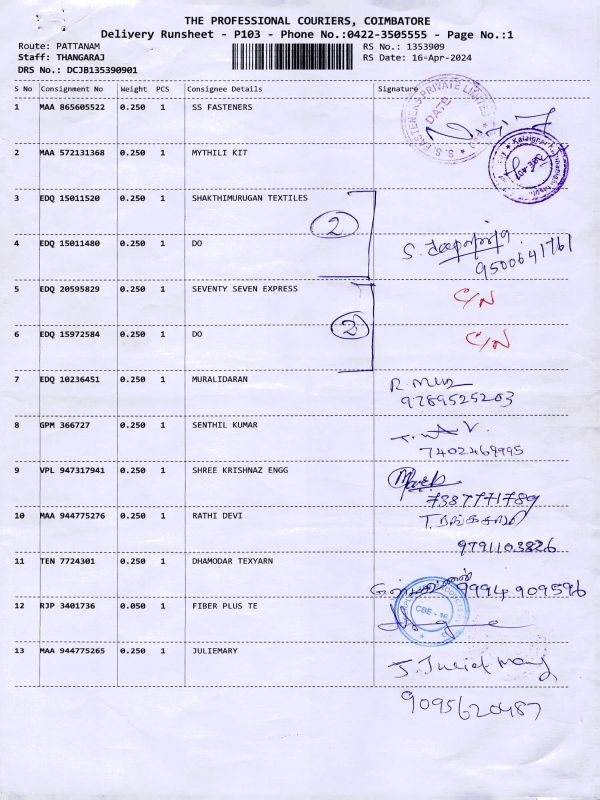 THE PROFESSIONAL COURIERS, COIMBATORE
Delivery Runsheet - P103 - Phone No.:0422-3505555 - Page No.:1
Route: PATTANAM
RS No.: 1353909
Staff: THANGARAJ
RS Date: 16-Apr-2024
DRS No.: DCJB135390901
S No Consignment No Weight PCS Consignee Details Signature
1 MAA 865605522 0.250 1 SS FASTENERS
S. S. FASTENERS PRIVATE LIMITED DATE
2 MAA 572131368 0.250 1 MYTHILI KIT
3 EDQ 15011520 0.250 1 SHAKTHIMURUGAN TEXTILES
2
4 EDQ 15011480 0.250 1 DO
9500641761
5 EDQ 20595829 0.250 1 SEVENTY SEVEN EXPRESS C/N
2
6 EDQ 15972584 0.250 1 DO C/N
7 EDQ 10236451 0.250 1 MURALIDARAN
9789525203
8 GPM 366727 0.250 1 SENTHIL KUMAR
7402469995
9 VPL 947317941 0.250 1 SHREE KRISHNAZ ENGG
7387771789
10 MAA 944775276 0.250 1 RATHI DEVI
9791103826
11 TEN 7724301 0.250 1 DHAMODAR TEXYARN
9994909596
12 RJP 3401736 0.050 1 FIBER PLUS TE
CBE - 16
13 MAA 944775265 0.250 1 JULIEMARY
9095620487